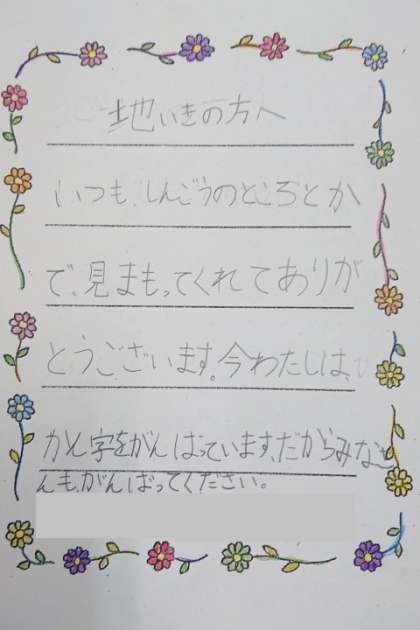 地いきの方へ
いつも、しんごうのところとか
で、見まもってくれてありが
とうございます。今わたしは、
かん字をがんばっています、だからみなさ
んも、がんばってください。